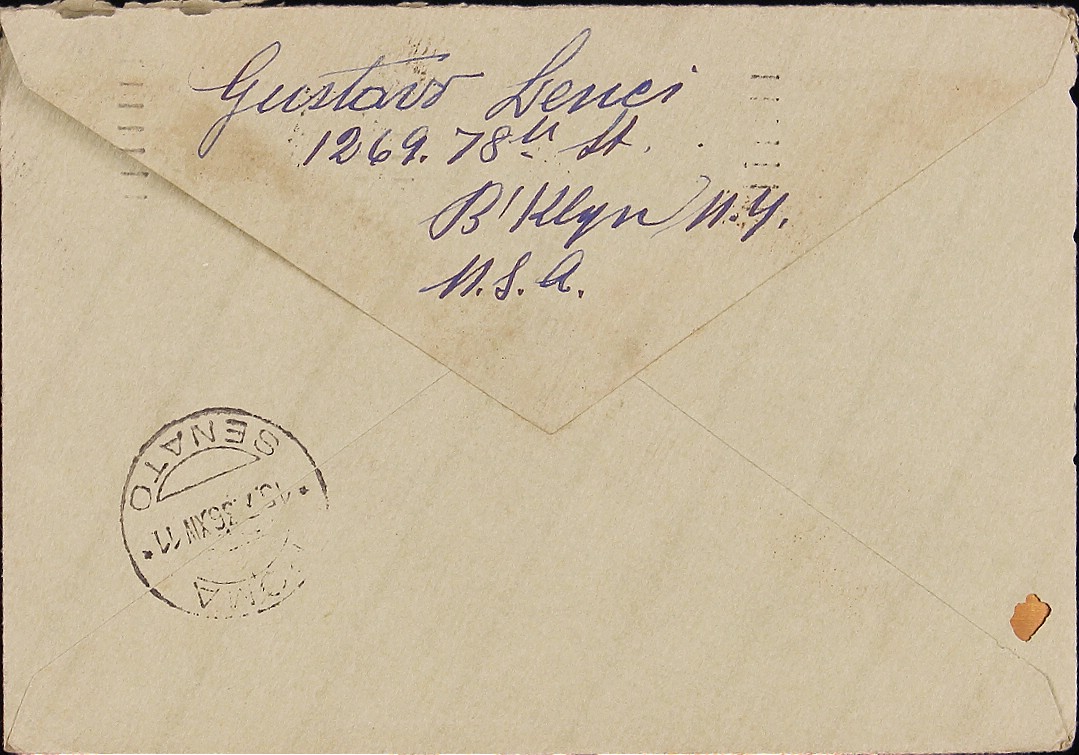 Gustavo Lenci
1269. 78th St.
B'klyn N.Y.
U.S.A.
SENATO
36 XIV 11